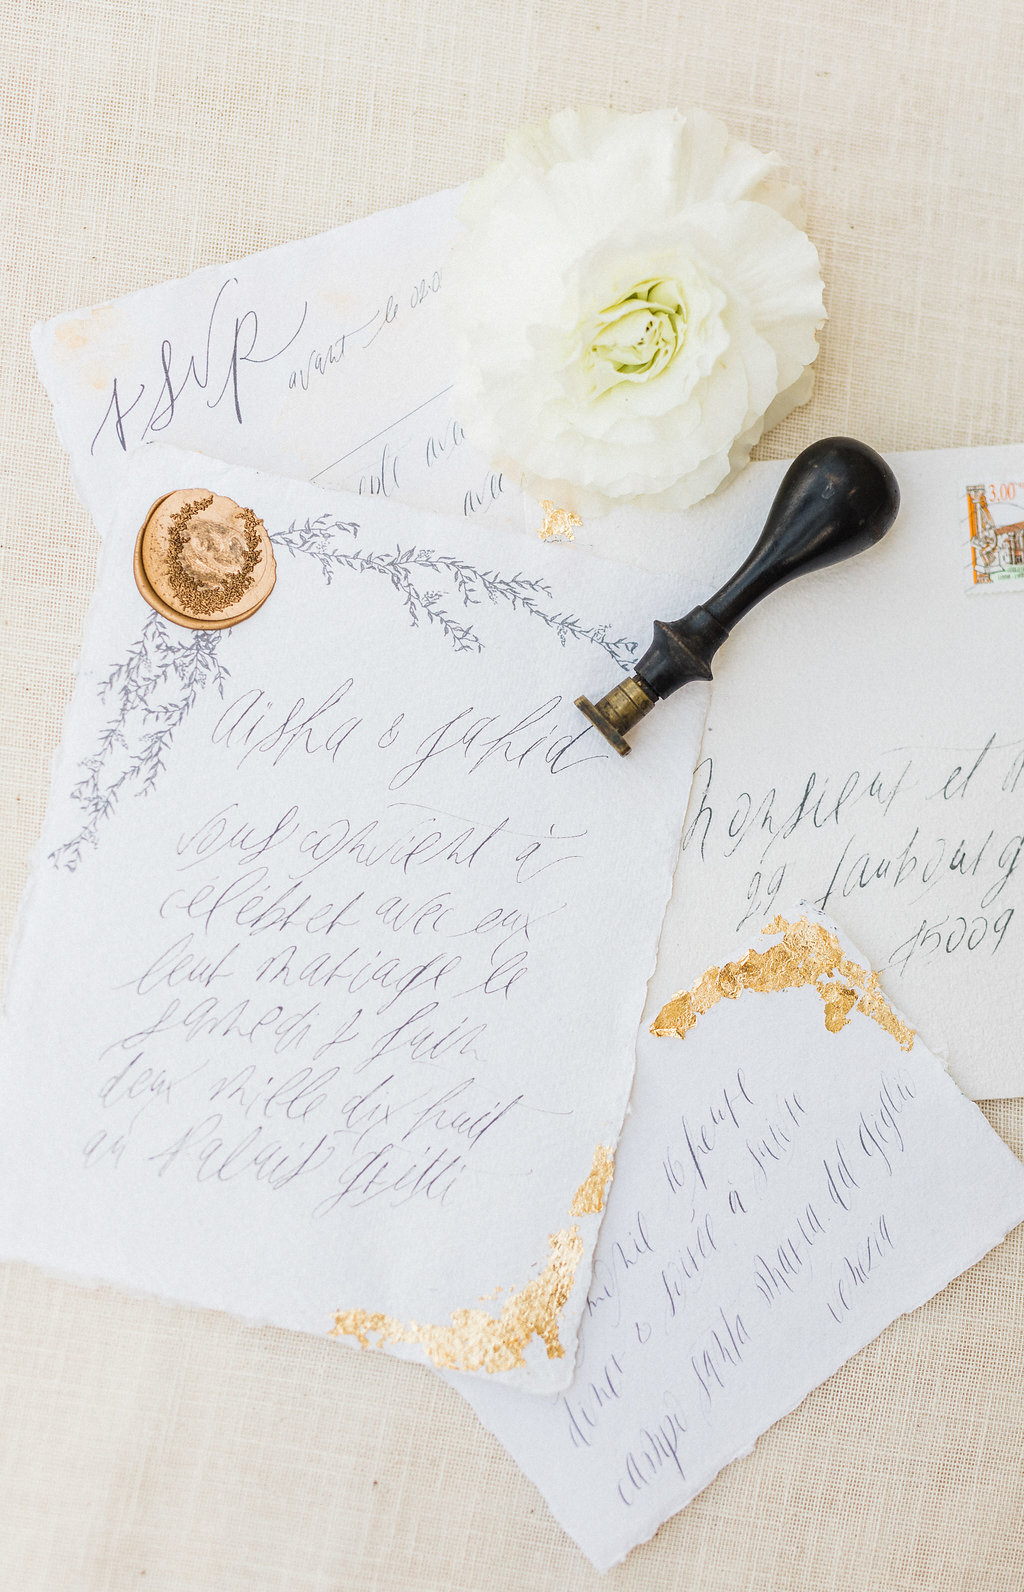 RSVP
avant le 02.0
avec
3.00
aisha & sahid
vous convient à
célébrer avec eux
leur mariage le
samedi 2 juin
deux mille dix huit
au Palais Grissi
Monsieur et
29 faubourg
45009
16 heure
dîner & soirée à suivre
campo santa maria del giglio
venezia